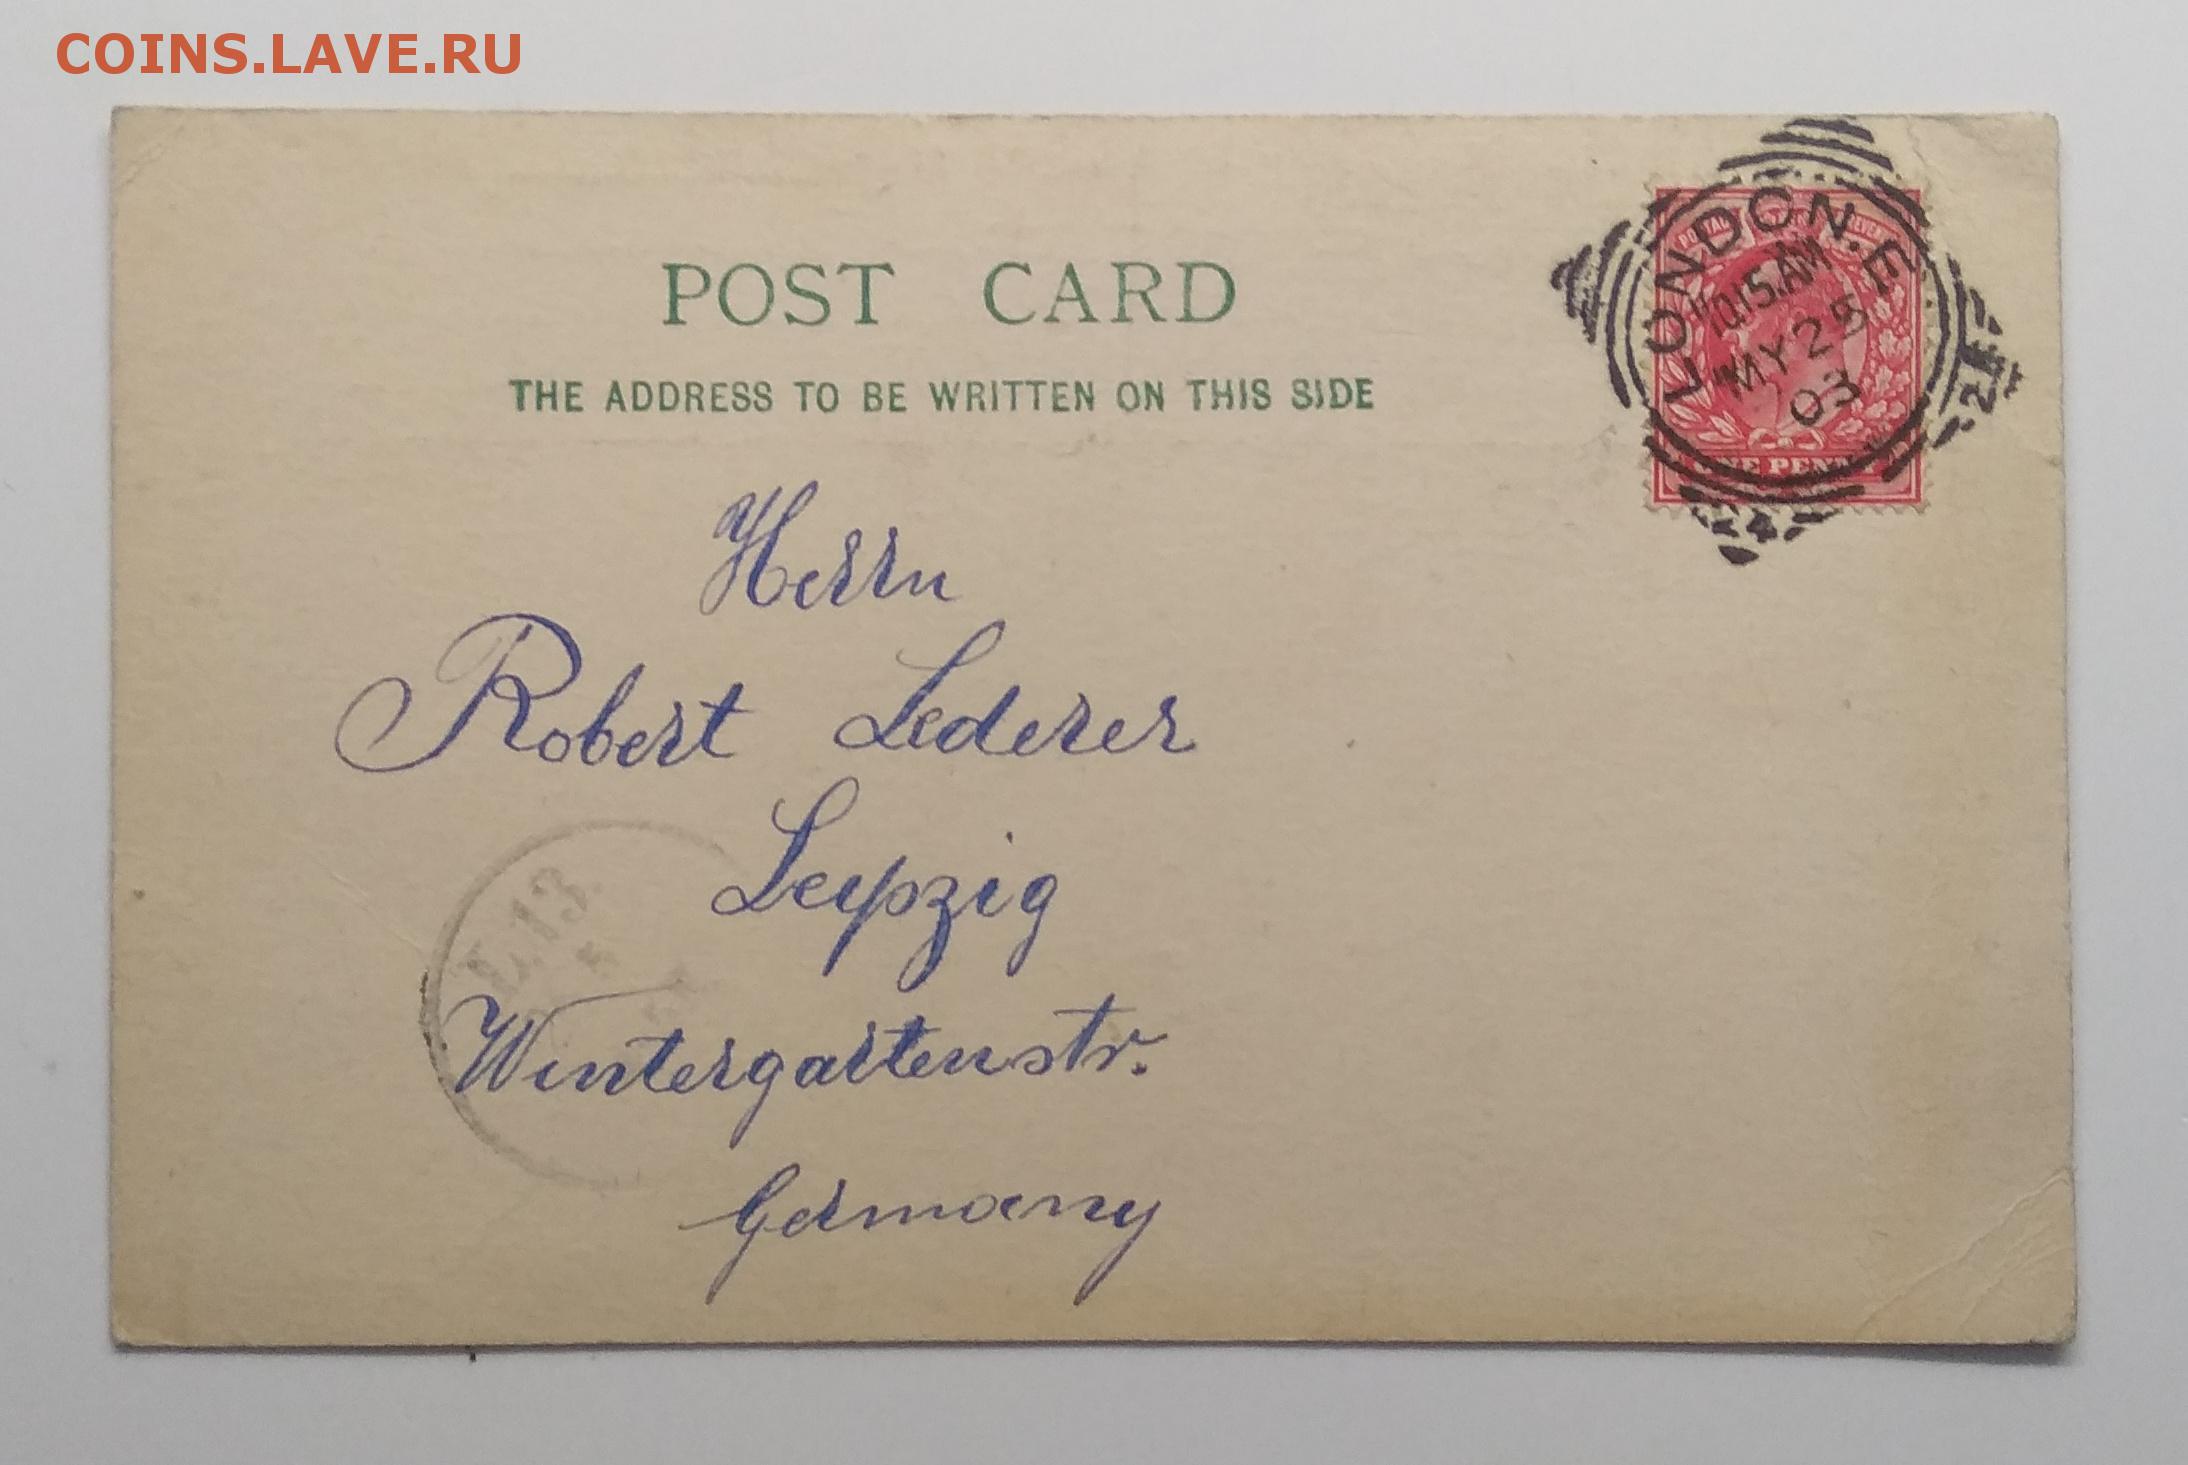 COINS.LAVE.RU
POST CARD
THE ADDRESS TO BE WRITTEN ON THIS SIDE
POSTAL REVENUE
LONDON.E
10.15.AM
MY 25
03
ONE PENNY
4
Herrn
Robert Lederer
Leipzig
L.13.
5
Wintergartenstr.
Germany